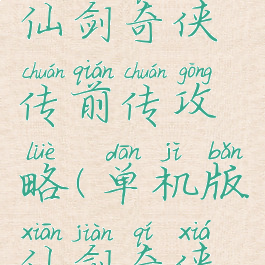 仙剑奇侠
chuán qián chuán gōng
传前传攻
lüè dān jī bǎn
略(单机版
xiān jiàn qí xiá
仙剑奇侠